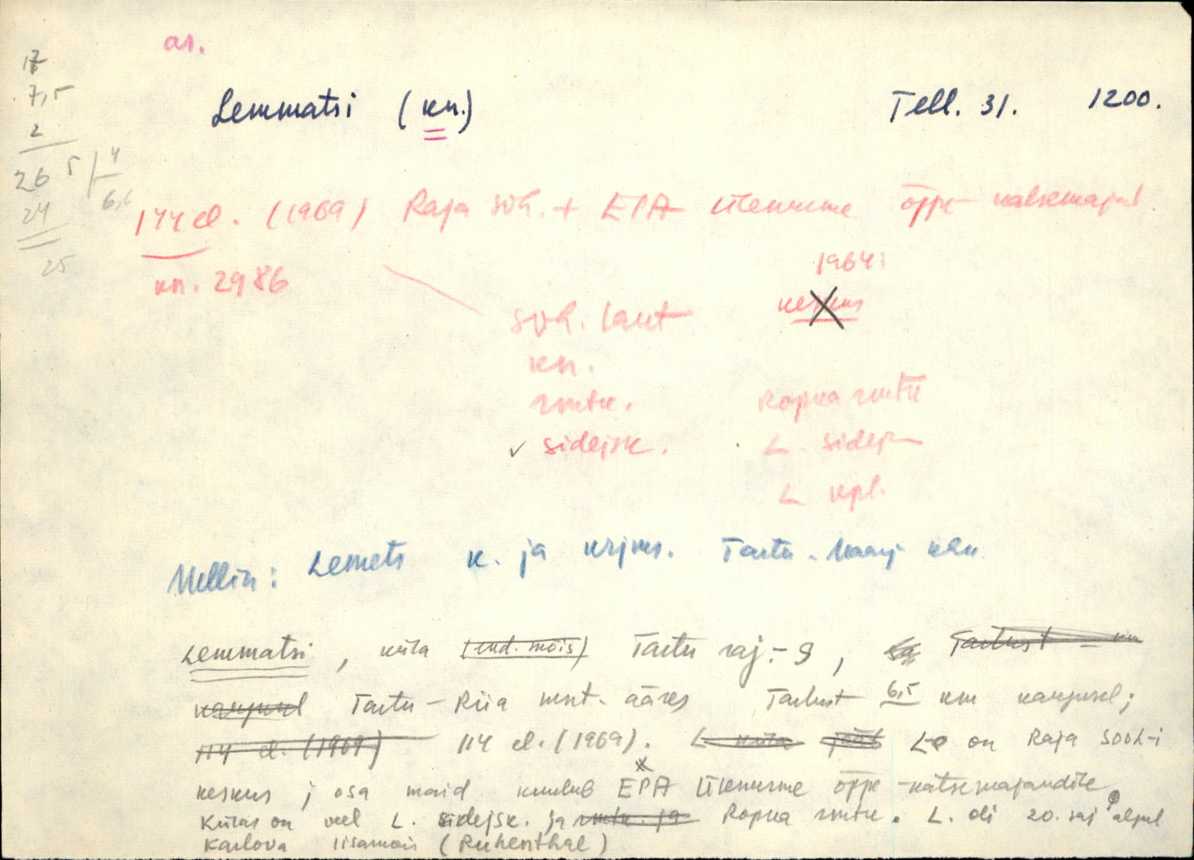 as.
17
7,5
2
26 5 | 4
24 6,6
25
Lemmatsi (kn.) Tell. 31. 1200.
114 el. (1969) Raja sovh. + EPA Ülenurme õppe-katsemajand
kn. 2986
1964:
sovh. laut keskus
kn.
rmtk. Ropka rmtk
✓ sidejsk. L. sidejsk
L kpl.
Mellin: Lemets k. ja krjms. Tartu-Maarj khk.
Lemmatsi, küla (end. mõis) Tartu raj.-s, Tartust – km
kaugusel Tartu – Riia mnt. ääres Tartust 6,5 km kaugusel;
114 el. (1969) 114 el. (1969). L küla jääb L-e on Raja sovh-i
keskus; osa maid kuulub EPA Ülenurme õppe-katsemajandile
Külas on veel L. sidejsk. ja rmtk. ja Ropka rmtk. L. oli 20. saj algul
Karlova lisamõis (Ruhenthal)